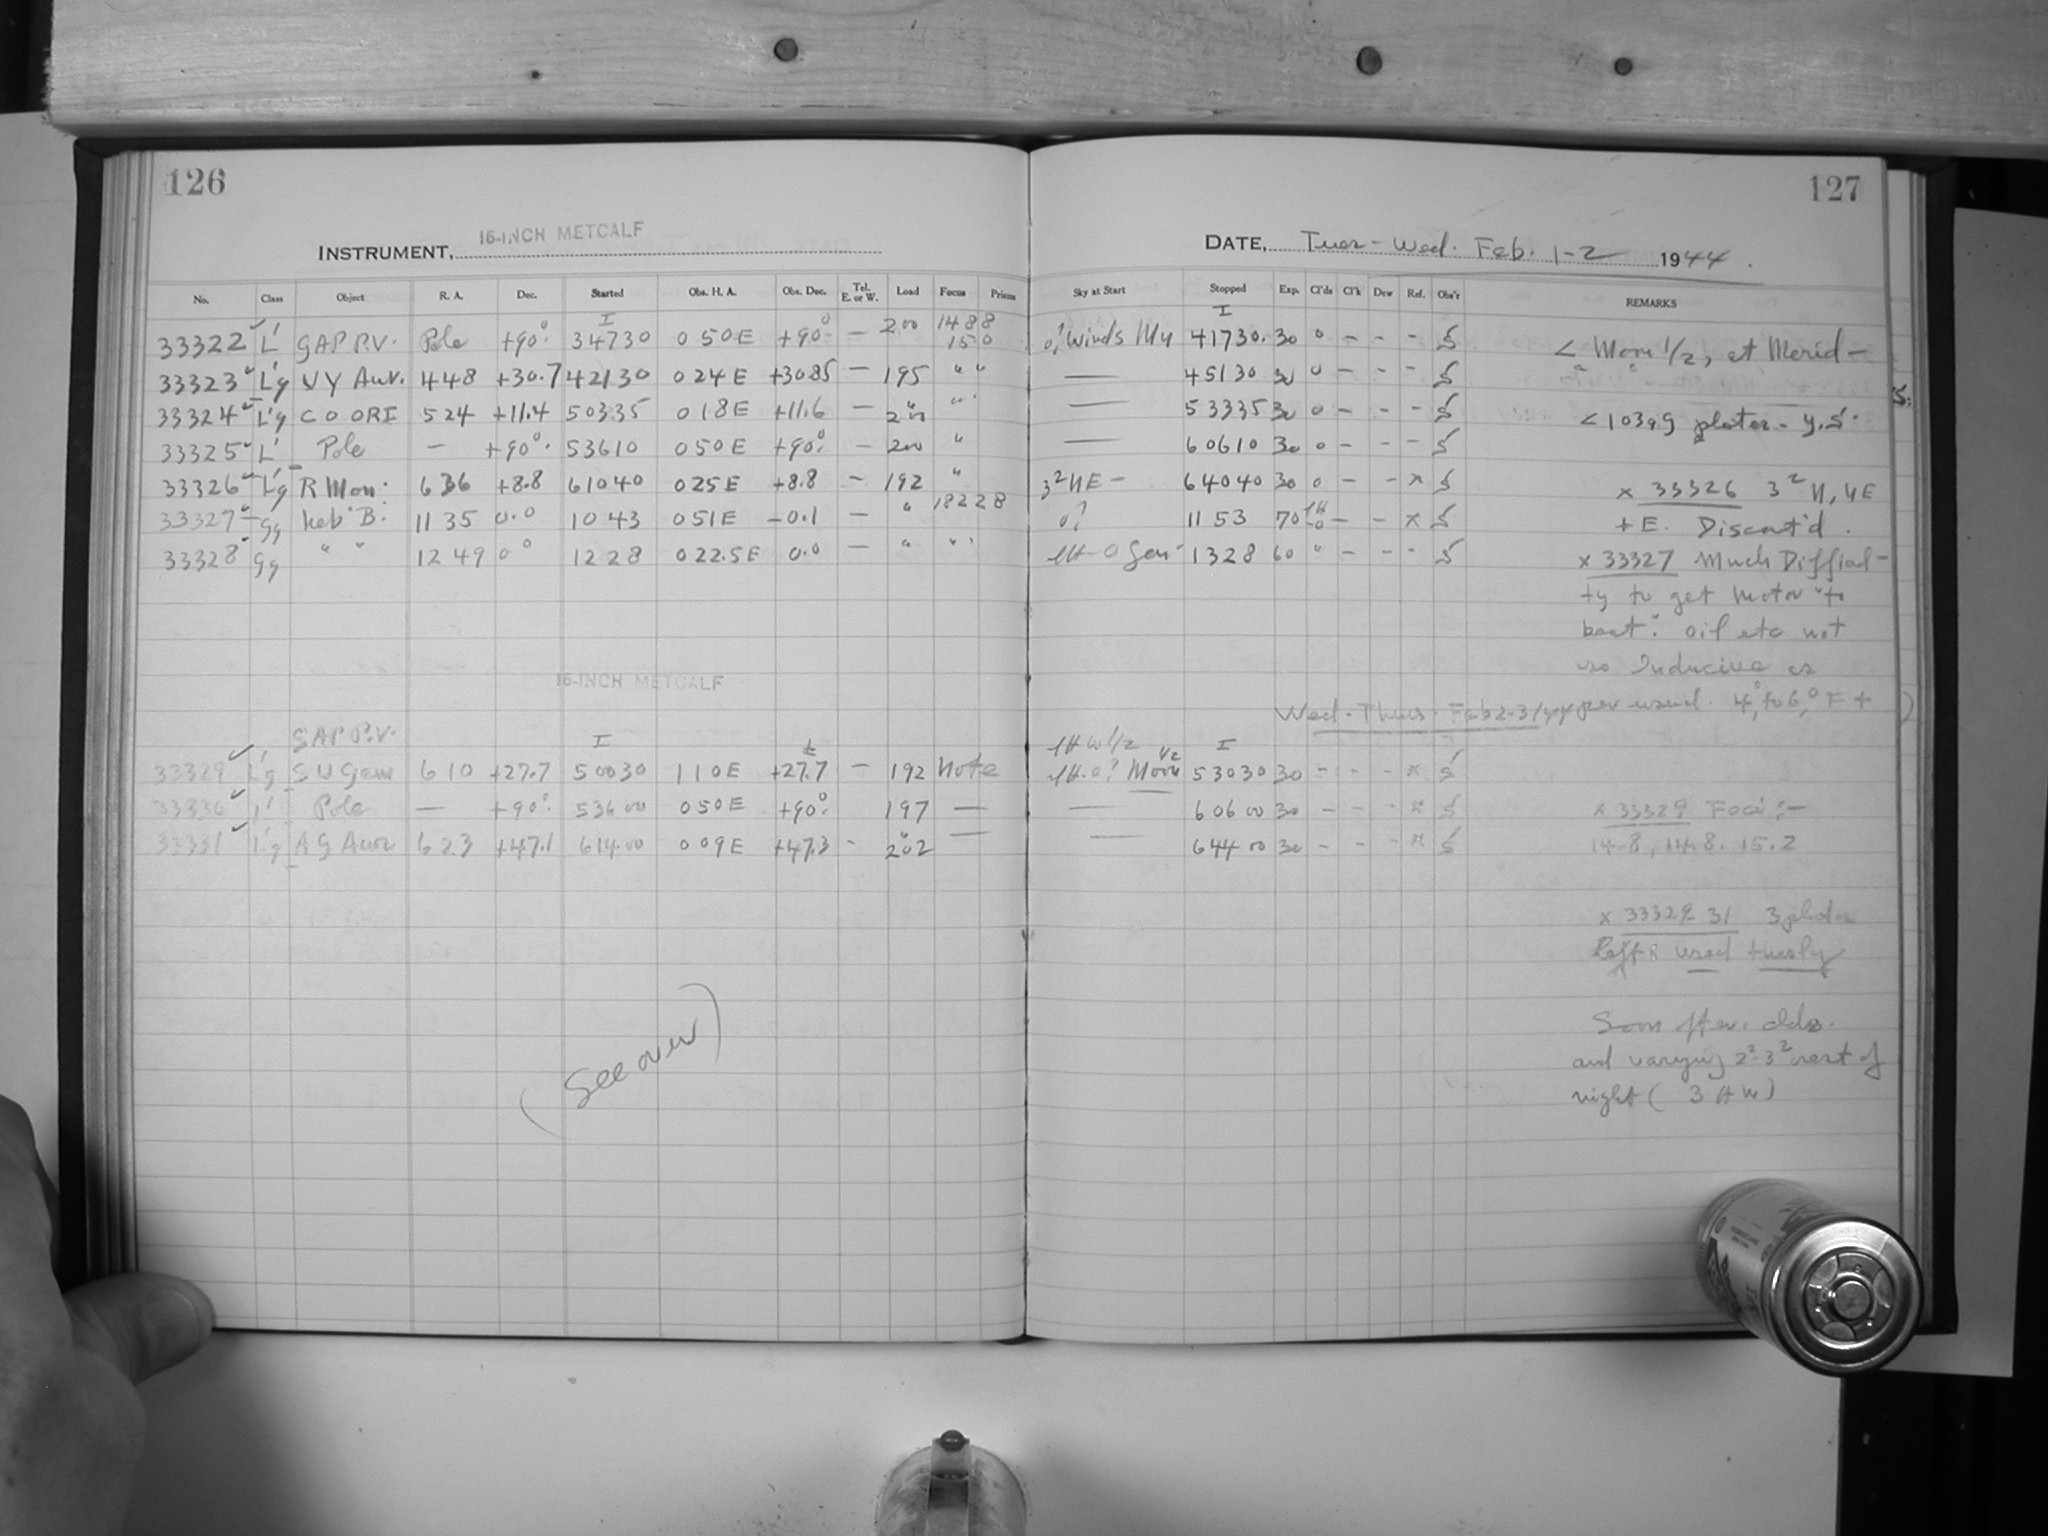 126
127
16-INCH METCALF
INSTRUMENT,
DATE, Tues - Wed. Feb. 1-2 1944.
No. Class Object R. A. Dec. Started Obs. H. A. Obs. Dec. Tel. E. or W. Load Focus Prisms Sky at Start Stopped Exp. Cl'ds Cl'k Dew Ref. Obs'r REMARKS
33322 L' Pole +90° 34730 050E +90° — 200 1488 150 41730 30 0 - - - S
< Moon 1/2, at Merid-
33323 L'g UY Aur. 448 +30.7 42130 024E +30.85 — 195 " " — 45130 30 0 - - - S
33324 L'g CO ORI 524 +11.4 50335 018E +11.6 — " — 53335 30 0 - - - S
< 103aG plates - Y.S.
33325 L' Pole — +90° 53610 050E +90° — 200 " — 60610 30 0 - - - S
33326 L'g R Mon: 636 +8.8 61040 025E +8.8 — 192 " 3² NE - 64040 30 0 - - x S
x 33326 3² N, NE
33327 Gg 1135 0.0 1043 051E -0.1 — " 18228 0? 1153 70 - - x S
+ E. Discont'd.
33328 Gg " " 1249 0° 1228 022.5E 0.0 — " " 1328 60 " - - - S
x 33327 Much Diffial-
ty to get Motor "to
beat". oil etc not
so Inducive as
per usual. 4,° to 6,° F +
16-INCH METCALF
Wed - Thurs - Feb 2-3/44
33329 L'g SU Gem 610 +27.7 50030 110E +27.7 — 192 Note Moon 1/2 53030 30 - - - x S
33330 L' Pole — +90° 53600 050E +90° — 197 — — 60600 30 - - - x S
x 33329 Foci :-
33331 L'g 623 +47.1 61400 009E +47.3 - 202 — — 64400 30 - - - x S
14.8, 14.8, 15.2
x 33329-31 3
used thusly
Soon after clds.
and varying 2²-3² rest of
night ( 3 AM )
(See over)